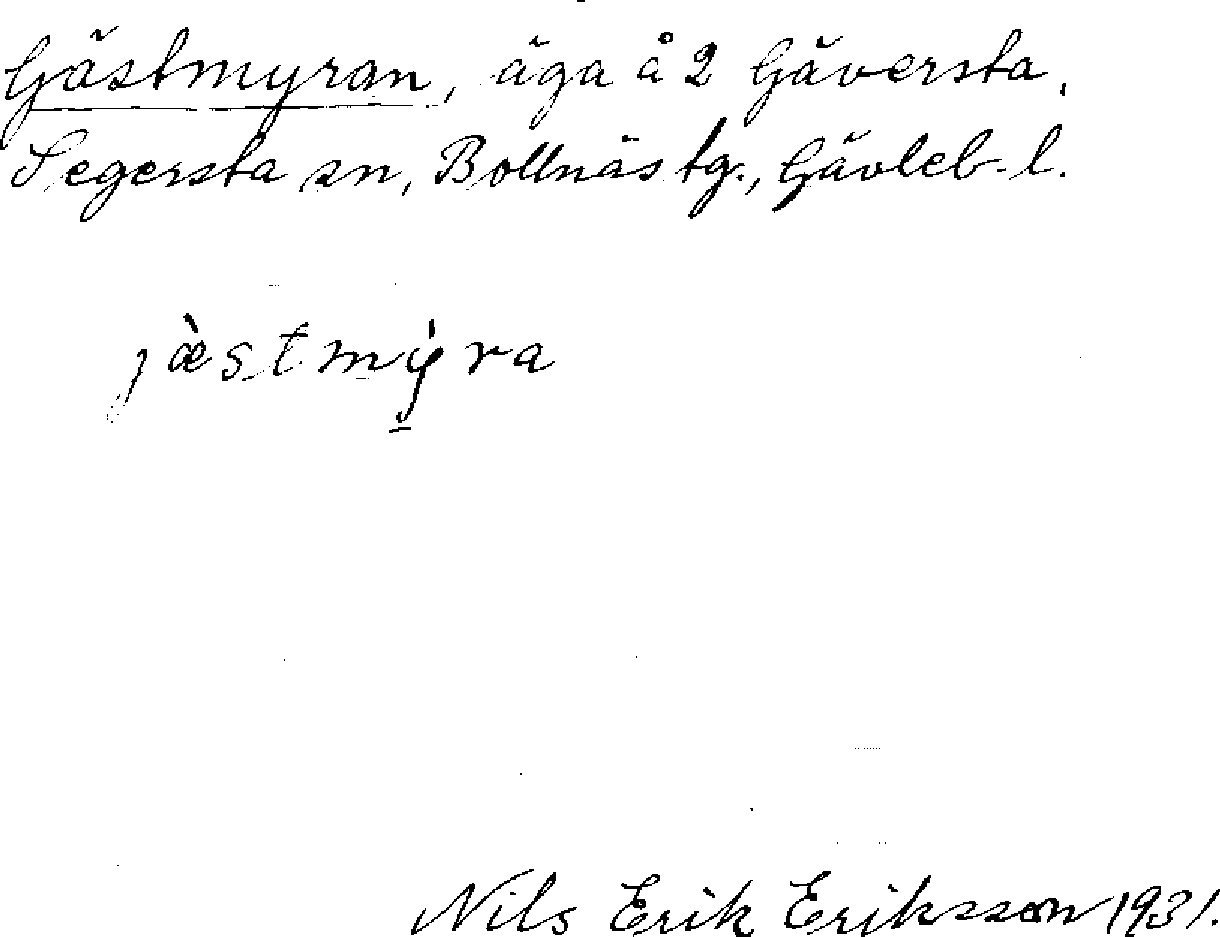 Gästmyran, äga å 2 Gäversta.
Segersta sn, Bollnäs tg., Gävleb-l.
jæ̀stmy̠̍ra
Nils Erik Eriksson 1931.